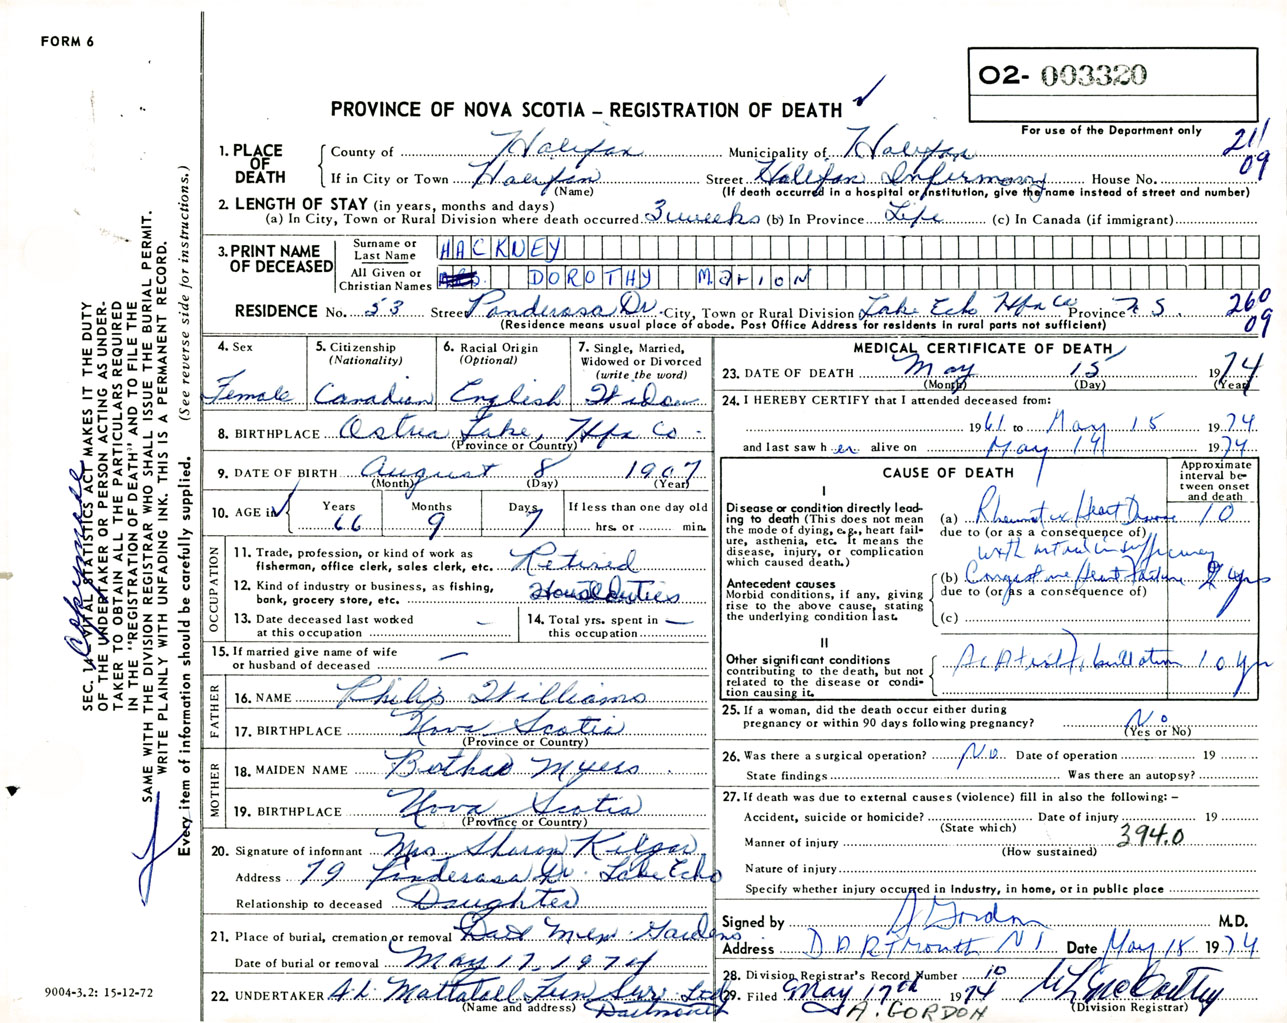 FORM 6
02- 003320
PROVINCE OF NOVA SCOTIA – REGISTRATION OF DEATH ✓
For use of the Department only
211
09
1. PLACE OF DEATH
County of Halifax Municipality of Halifax
If in City or Town Halifax Street Halifax Infirmary House No.
(Name) (If death occurred in a hospital or institution, give the name instead of street and number)
2. LENGTH OF STAY (in years, months and days)
(a) In City, Town or Rural Division where death occurred 3 weeks (b) In Province Life (c) In Canada (if immigrant)
3. PRINT NAME OF DECEASED
Surname or Last Name HACKNEY
All Given or Christian Names DOROTHY Marion
RESIDENCE No. 53 Street Ponderosa Dr. City, Town or Rural Division Lake Echo Hfx Co Province N S.
(Residence means usual place of abode. Post Office Address for residents in rural parts not sufficient)
260
09
4. Sex
Female
5. Citizenship
(Nationality)
Canadian
6. Racial Origin
(Optional)
English
7. Single, Married,
Widowed or Divorced
(write the word)
Widow
8. BIRTHPLACE Ostrea Lake, Hfx Co.
(Province or Country)
9. DATE OF BIRTH August 8 1907
(Month) (Day) (Year)
10. AGE in ✓
Years 66
Months 9
Days 7
If less than one day old
hrs. or min.
OCCUPATION
11. Trade, profession, or kind of work as
fisherman, office clerk, sales clerk, etc. Retired
12. Kind of industry or business, as fishing,
bank, grocery store, etc. House Duties
13. Date deceased last worked
at this occupation –
14. Total yrs. spent in
this occupation –
15. If married give name of wife
or husband of deceased –
FATHER
16. NAME Philip Williams
17. BIRTHPLACE Nova Scotia
(Province or Country)
MOTHER
18. MAIDEN NAME Myers
19. BIRTHPLACE Nova Scotia
(Province or Country)
20. Signature of informant Mrs Sharon
Address 79 Ponderosa Dr. Lake Echo
Relationship to deceased Daughter
21. Place of burial, cremation or removal Dart Mem. Gardens
Date of burial or removal May 17, 1974
22. UNDERTAKER A L Mattatall Fun Ser. Ltd
(Name and address) Dartmouth
MEDICAL CERTIFICATE OF DEATH
23. DATE OF DEATH May 15 1974
(Month) (Day) (Year)
24. I HEREBY CERTIFY that I attended deceased from:
1961 to May 15 1974
and last saw her alive on May 14 1974
CAUSE OF DEATH
Approximate interval between onset and death
I
Disease or condition directly leading to death (This does not mean the mode of dying, e.g., heart failure, asthenia, etc. It means the disease, injury, or complication which caused death.)
(a) Rheumatic Heart Disease 10
due to (or as a consequence of)
with mitral insufficiency
Antecedent causes
Morbid conditions, if any, giving rise to the above cause, stating the underlying condition last.
(b) Congestive Heart Failure 2 yrs
due to (or as a consequence of)
(c)
II
Other significant conditions contributing to the death, but not related to the disease or condition causing it.
fibrillation 10 yr
25. If a woman, did the death occur either during
pregnancy or within 90 days following pregnancy? No
(Yes or No)
26. Was there a surgical operation? No. Date of operation 19
State findings Was there an autopsy?
27. If death was due to external causes (violence) fill in also the following: –
Accident, suicide or homicide? Date of injury 19
(State which)
Manner of injury 394.0
(How sustained)
Nature of injury
Specify whether injury occurred in Industry, in home, or in public place
Signed by A Gordon M.D.
Address DARTmouth NS Date May 18 1974
28. Division Registrar's Record Number 10
29. Filed May 17th 1974
(Division Registrar)
A. GORDON
SEC. 14 VITAL STATISTICS ACT MAKES IT THE DUTY
OF THE UNDERTAKER OR PERSON ACTING AS UNDER-
TAKER TO OBTAIN ALL THE PARTICULARS REQUIRED
IN THE "REGISTRATION OF DEATH" AND TO FILE THE
SAME WITH THE DIVISION REGISTRAR WHO SHALL ISSUE THE BURIAL PERMIT.
WRITE PLAINLY WITH UNFADING INK. THIS IS A PERMANENT RECORD.
Every item of information should be carefully supplied. (See reverse side for instructions.)
9004-3.2: 15-12-72